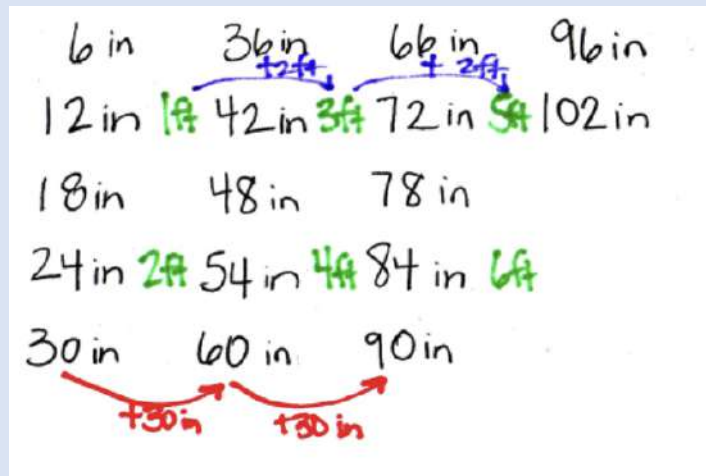 6 in 36 in 66 in 96 in
+2ft + 2ft
12 in 1ft 42 in 3ft 72 in 5ft 102 in
18 in 48 in 78 in
24 in 2ft 54 in 4ft 84 in 6ft
30 in 60 in 90 in
+30 in +30 in